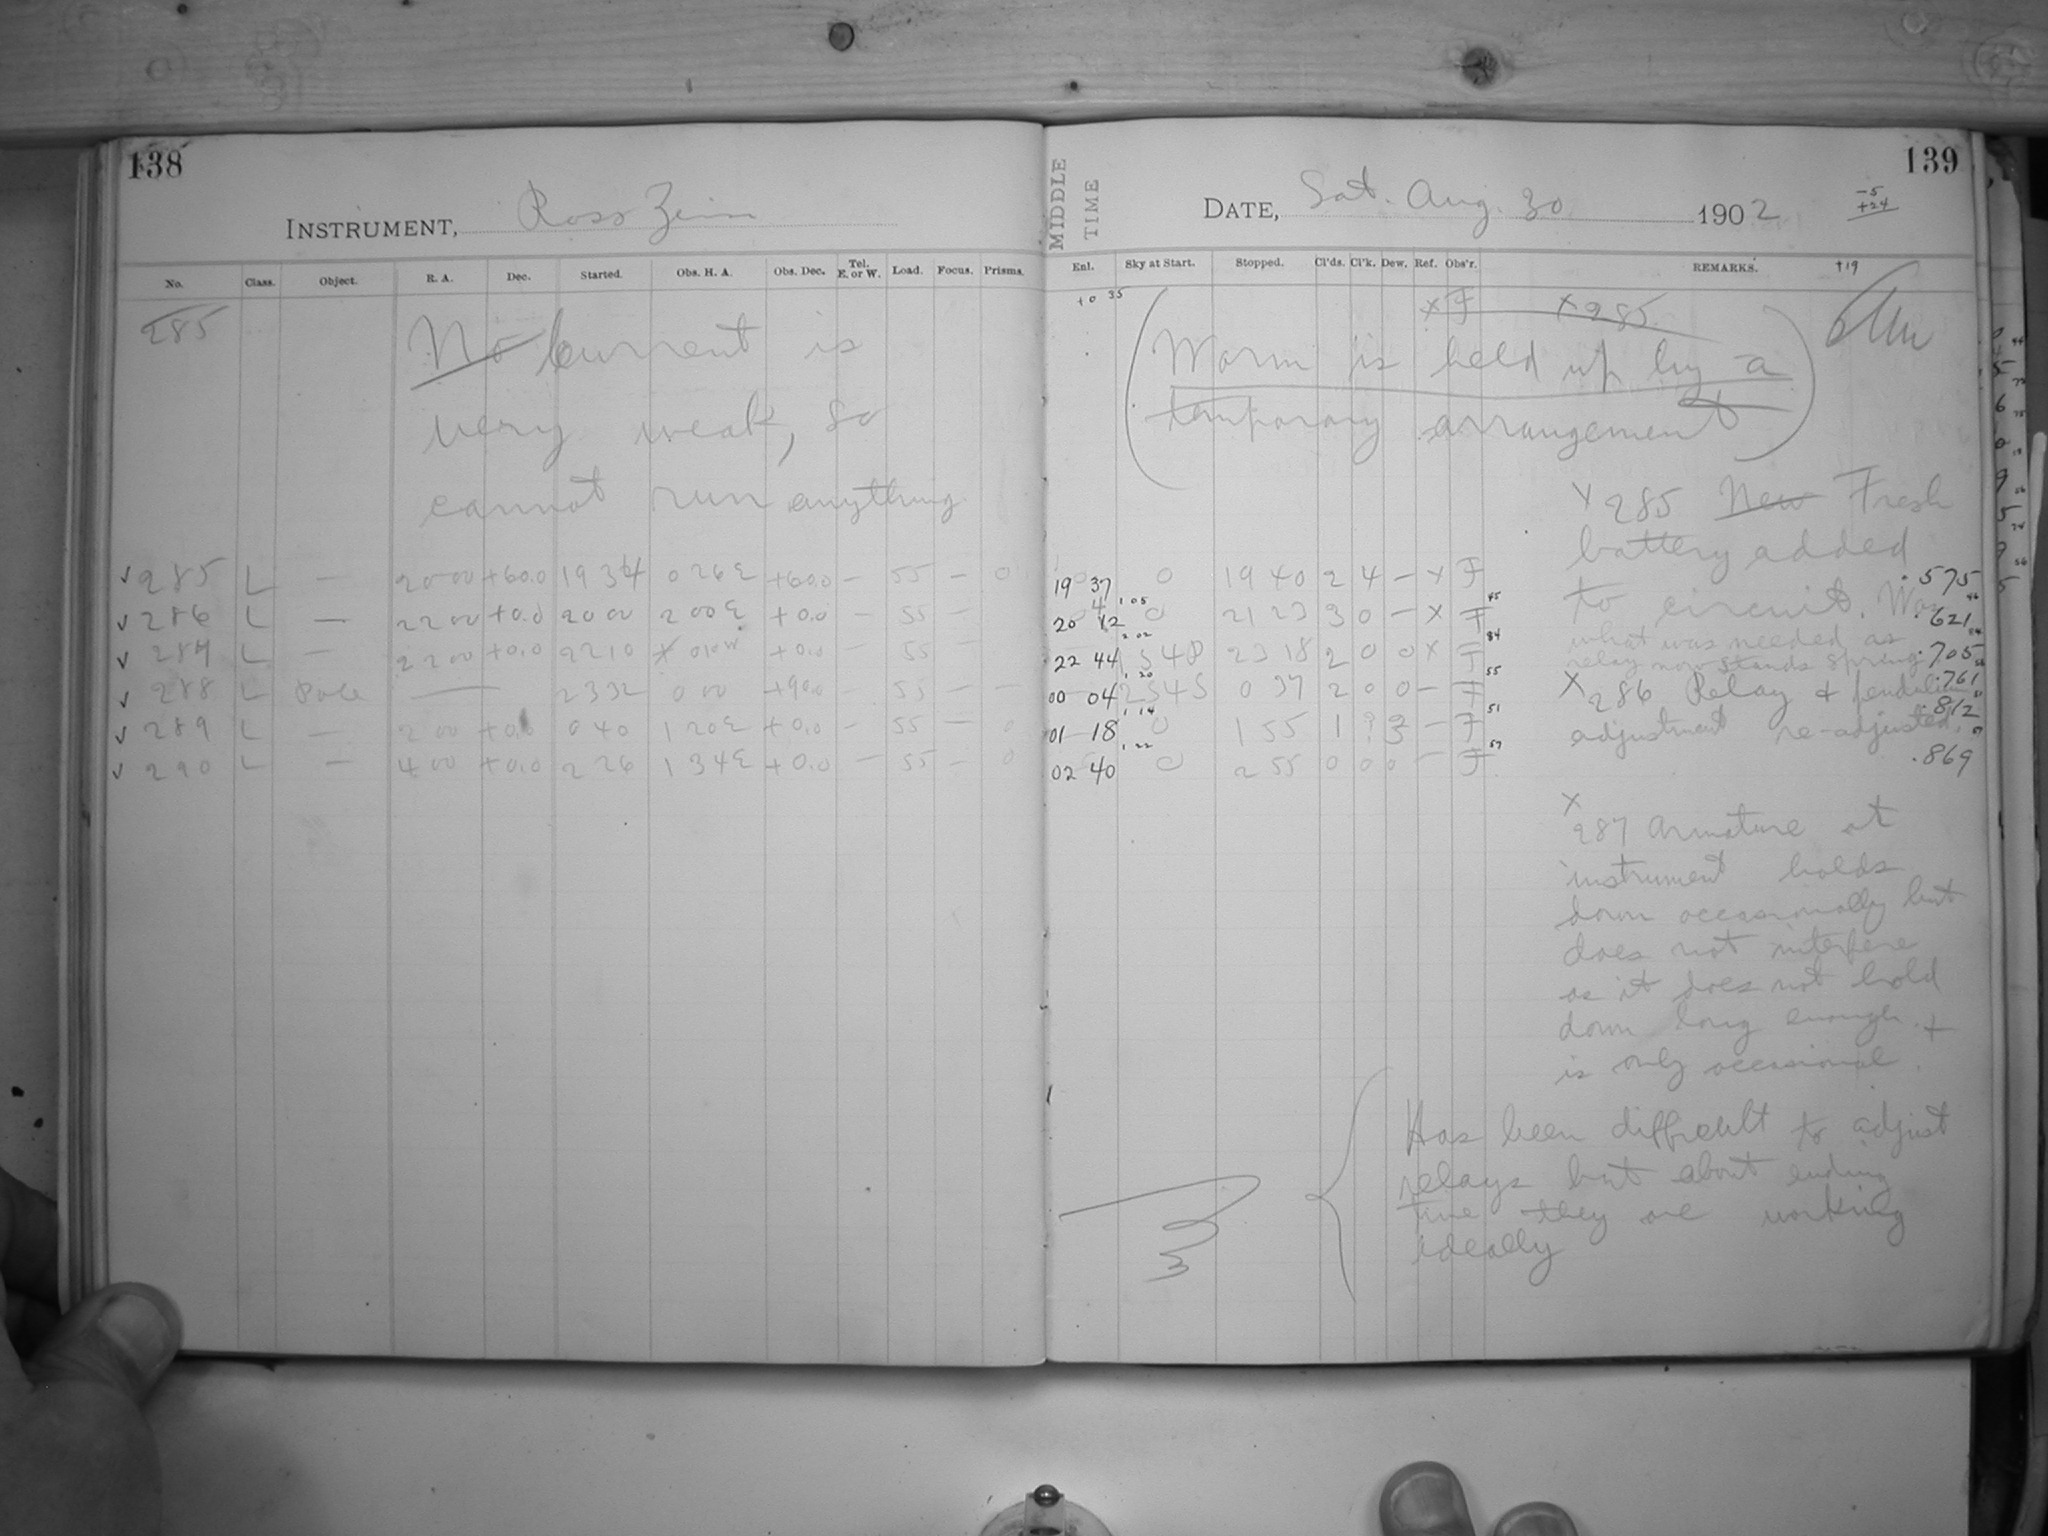 138
INSTRUMENT, Ross Zeiss
No. Class. Object. R. A. Dec. Started. Obs. H. A. Obs. Dec. Tel. E. or W. Load. Focus. Prisms.
285
No Current is
very weak, so
cannot run anything
✓ 285 L — 20 00 +60.0 19 34 0 26 E +60.0 — 55 — 0
✓ 286 L — 22 00 +0.0 20 00 2 00 E +0.0 — 55 —
✓ 287 L — 22 00 +0.0 22 10 0 10 W +0.0 — 55 —
✓ 288 L Pole — 23 32 0 00 +90.0 — 55 — —
✓ 289 L — 2 00 +0.0 0 40 1 20 E +0.0 — 55 — 0
✓ 290 L — 4 00 +0.0 2 26 1 34 E +0.0 — 55 — 0
139
MIDDLE TIME
DATE, Sat. Aug. 30 1902
-5
+24
+19
Enl. Sky at Start. Stopped. Cl'ds. Cl'k. Dew. Ref. Obs'r. REMARKS.
+0 35
X F X 285
(Worm is held up by a
temporary arrangement)
19 37 0 19 40 2 4 — X F .575
20 42 0 21 23 3 0 — X F .621
22 44 23 18 2 0 0 X F .705
00 04 0 37 2 0 0 — F .761
01 18 0 1 55 1 ? 3 — F .812
02 40 0 2 55 0 0 0 — F .869
X 285 New Fresh
battery added
to circuit. Was
what was needed as
relay now stands spring
X 286 Relay & pendulum
adjustment re-adjusted.
X
287 Armature at
instrument holds
down occasionally but
does not interfere
as it does not hold
down long enough +
is only occasional.
Has been difficult to adjust
relays but about ending
time they are working
ideally